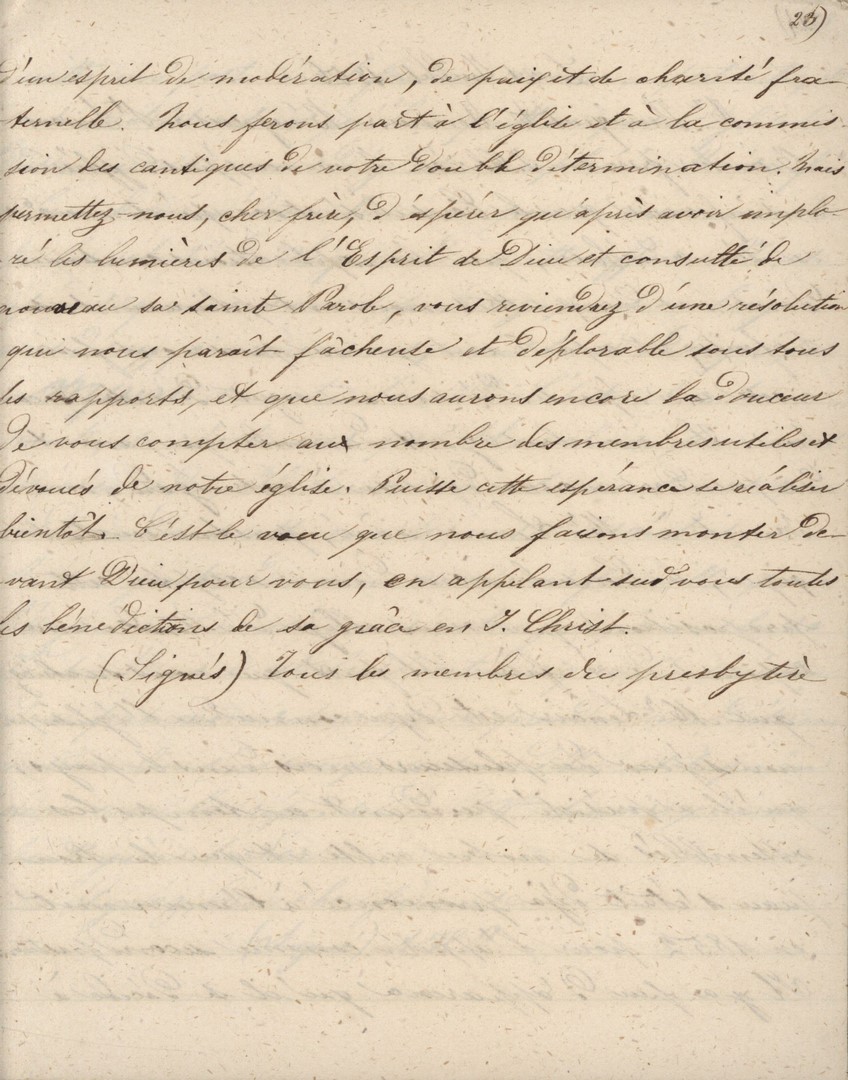 23)
d'un esprit de modération, de paix et de charité fra-
ternelle. Nous ferons part à l'église et à la commis-
sion des cantiques de votre double détermination. Mais
permettez-nous, cher frère, d'espérer qu'après avoir implo-
ré les lumières de l'Esprit de Dieu et consulté de
nouveau sa sainte Parole, vous reviendrez d'une résolution
qui nous paraît fâcheuse et déplorable sous tous
les rapports, et que nous aurons encore la douceur
de vous compter au nombre des membres utiles et
dévoués de notre église. Puisse cette espérance se réaliser
bientôt. C'est le voeu que nous faisons monter de-
vant Dieu pour vous, en appelant sur vous toutes
les bénédictions de sa grâce en J. Christ.
(Signés) Tous les membres du presbytère